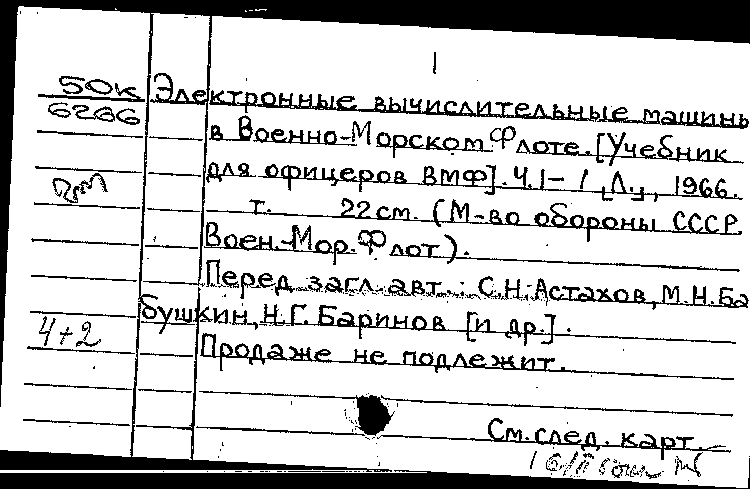 50к Электронные вычислительные машины
6266 в Военно-Морском Флоте. [Учебник
для офицеров ВМФ]. Ч.1- / [Л.], 1966.
т. 22 см. (М-во обороны СССР.
Воен.-Мор. Флот).
Перед загл. авт.: С.Н. Астахов, М.Н. Ба
бушкин, Н.Г. Баринов [и др.].
4+2
Продаже не подлежит.
См. след. карт.